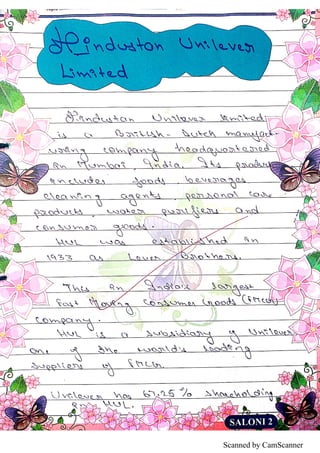 Hinduston Unilever
Limited
Hindustan Unilever Limited
is a British - Dutch manufact-
uring company headquartered
in Mumbai, India. Its product
includes foods, beverages
cleaning agents personal care
products, water purifiers and
consumer goods.
HUL was established in
1933 as Lever Brothers.
This in India's largest
Fast Moving Consumer Goods (FMCG)
Company.
HUL is a subsidiary of Unilever
one of the world's leading
suppliers of FMCG.
Unilever has 67.25% shareholding
HUL.
SALONI 2
Scanned by CamScanner